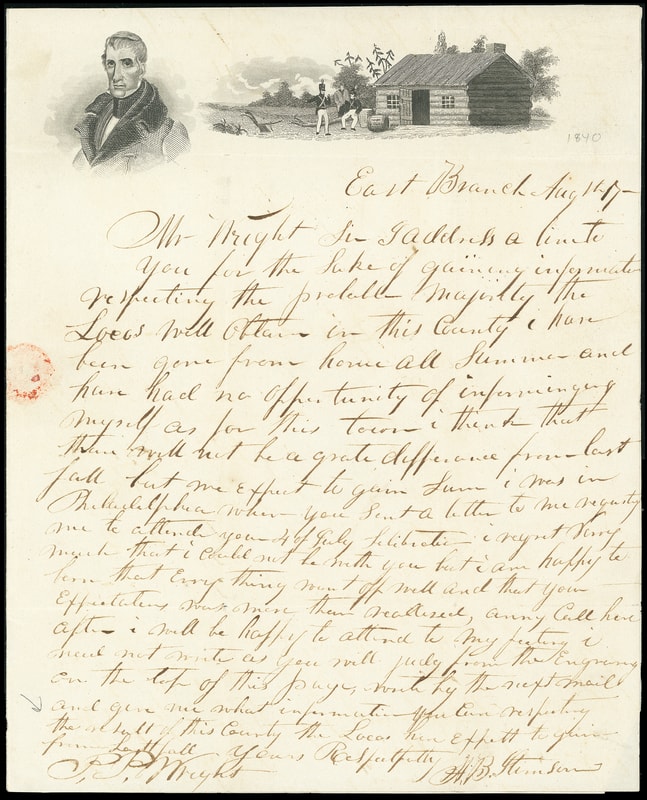 1840
East Branch Aug 17
Mr Wright Sir I address a line to
You for the Sake of gaining informati
respecting the probable Majority the
Locos Will Obtain in this County i have
been gone from home all Summer and
have had no Opportunity of informing
myself as for this town i think that
thair will not be a grate differance from last
fall but we Expect to gain Sum i was in
Philadelphia when you Sent a letter to me requesting
me to attend your 4 of July i regret Very
much that i Could not be with you but i am happy to
learn that Everything went off well and that your
Expectations was more than reallised, anny Call here
after i will be happy to attend to My i
need not write as you will judg from the Engraving
on the top of this page, write by the next mail
and give me what information you Can respecting
the result of this County the Locos Expect to gain
from Last fall Yours Respectfully
P. P. Wright A. B. Stimson